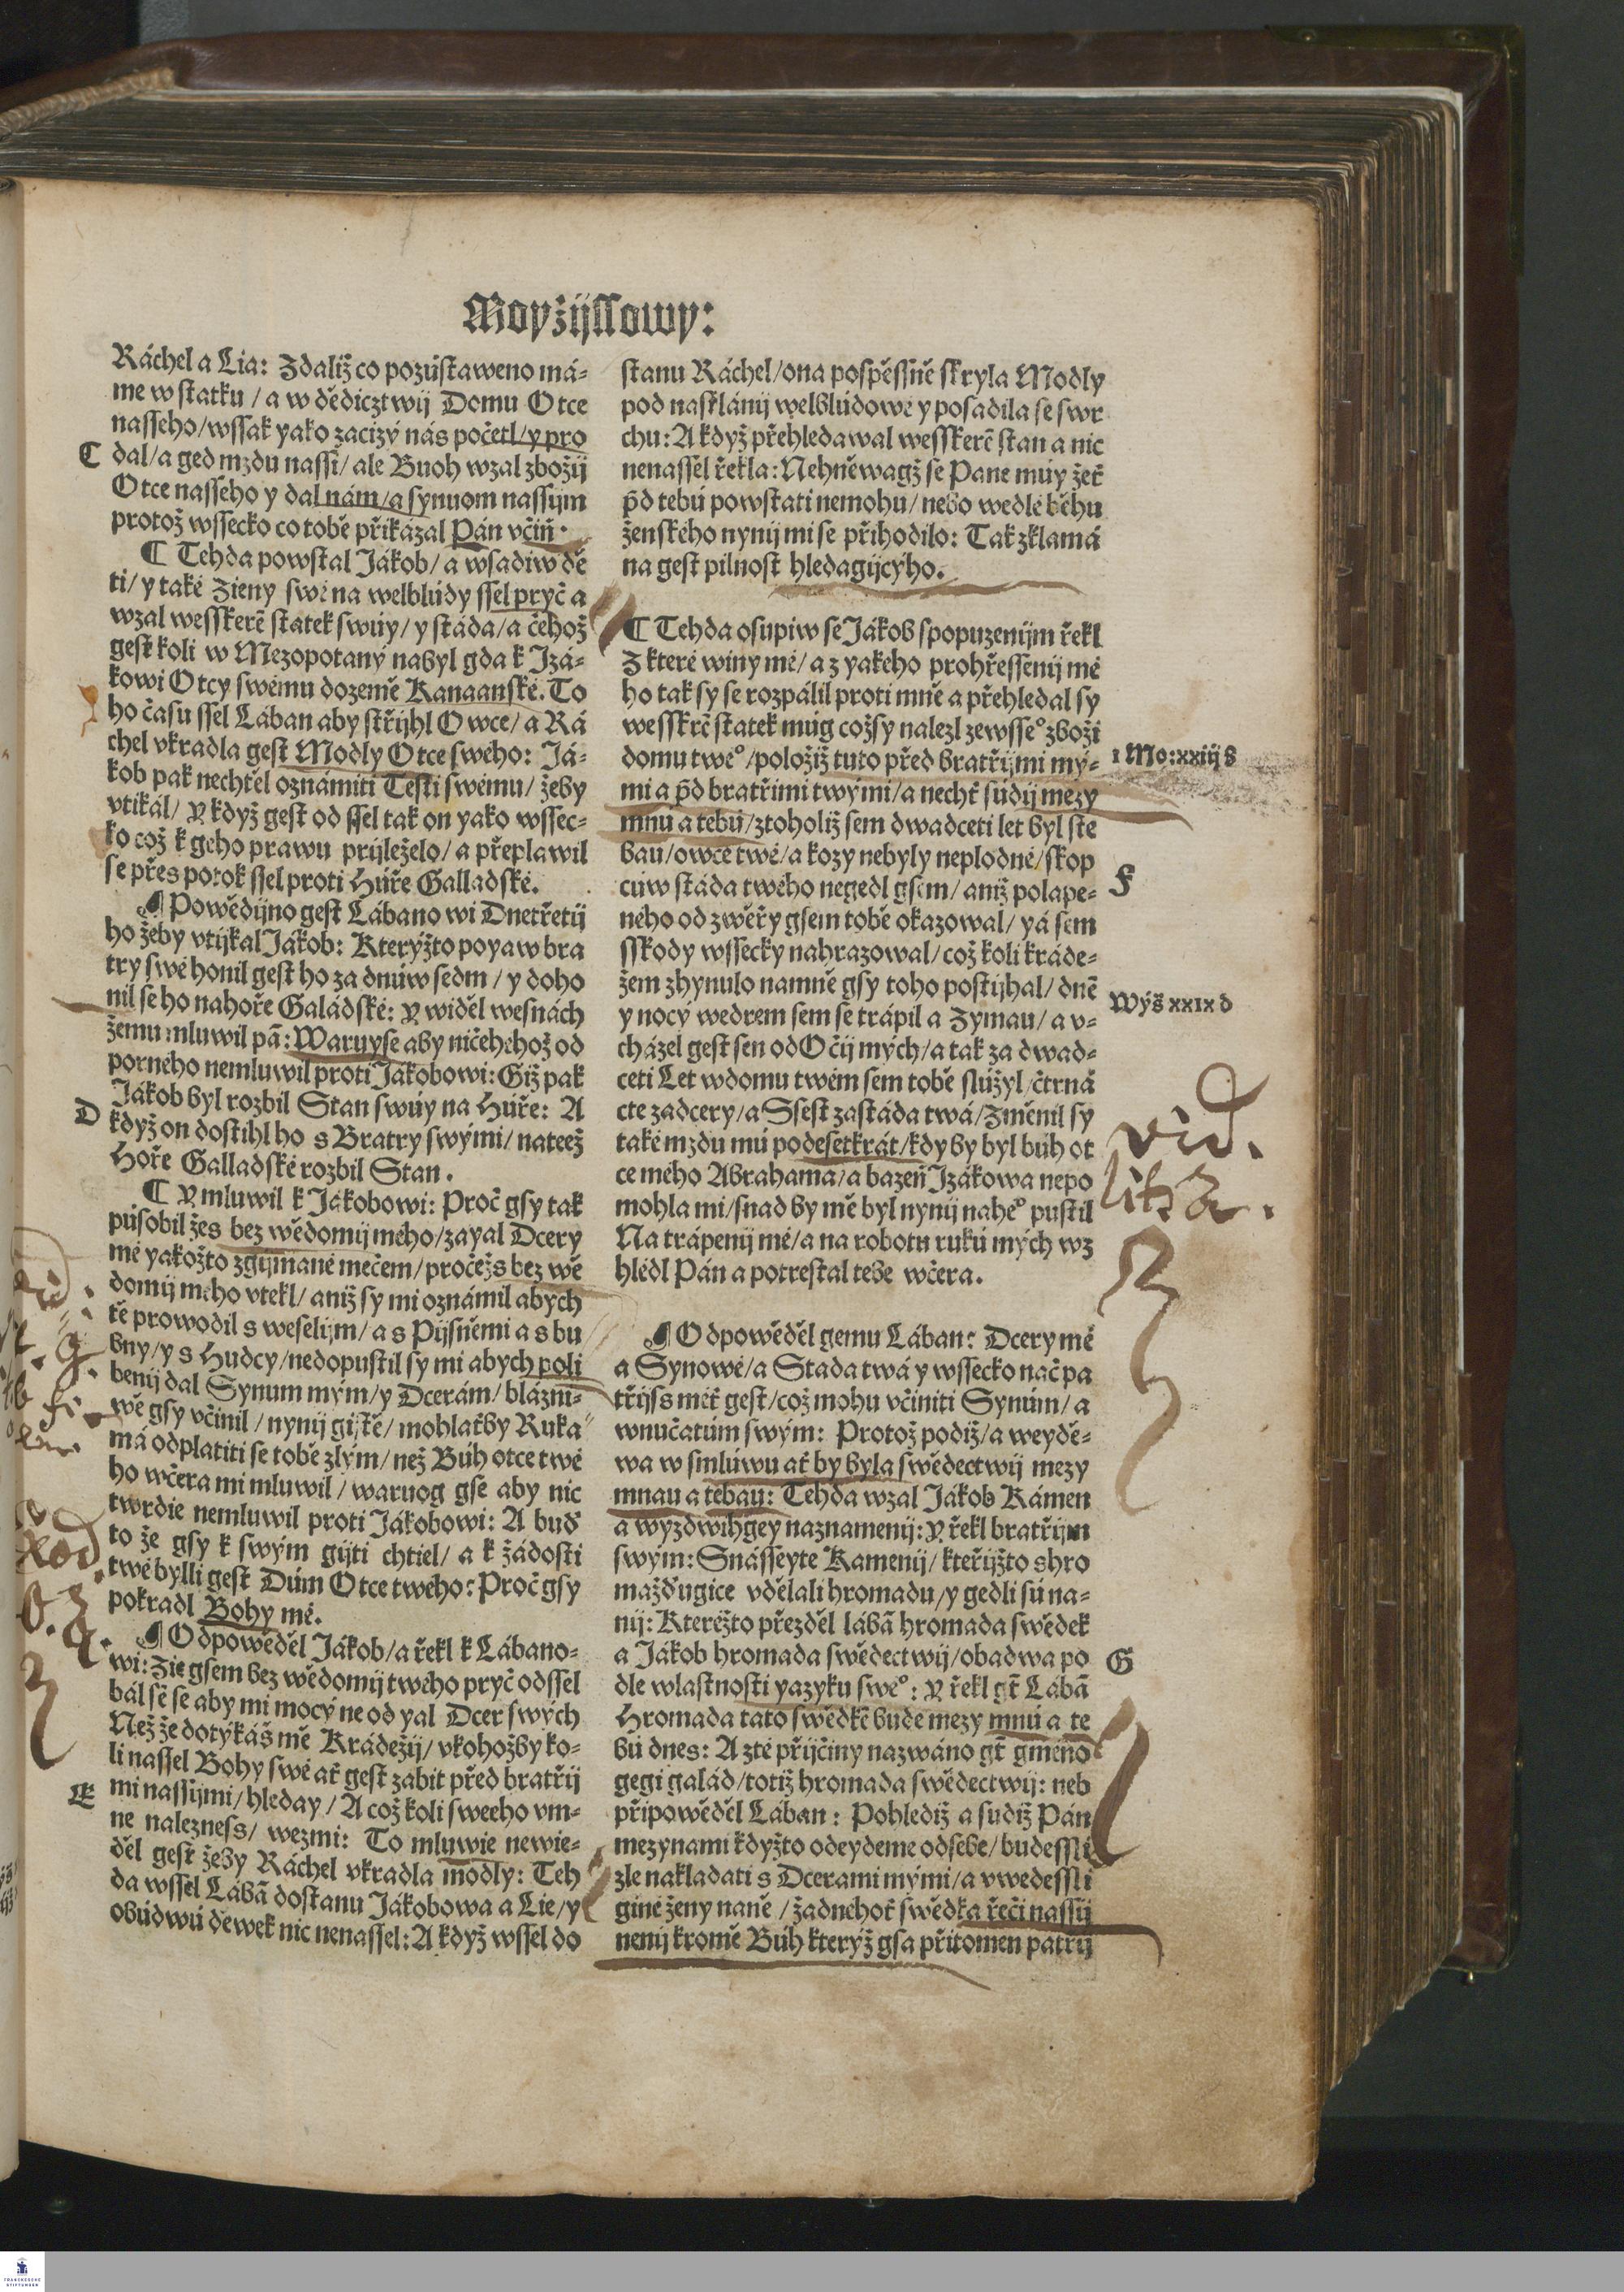 Moyžijssowy:
Ráchel a Lia: Zdaliž co pozústaweno má-
me w statku / a w dědicztwij Domu Otce
nasseho/wssak yako zacizý nás početl/y pro
C dal/a ged mzdu nassi/ ale Buoh wzal zbožij
Otce nasseho y dal nám/a synuom nassijm
protož wssecko co tobě přikázal Pán včiň.
¶ Tehda powstal Jákob/ a wsadiw dě
ti/ y také Zieny swé na welblúdy ssel pryč a
wzal wesskerẽ statek swúy/ y stáda/a čehož
gest koli w Mezopotaný nabyl gda k Izá-
kowi Otcy swému dozemě Kanaanské. To
ho času ssel Lában aby střijhl Owce/ a Rá
chel vkradla gest Modly Otce sweho: Já-
kob pak nechtěl oznámiti Testi swému/ žeby
vtikál/ Y když gest od ssel tak on yako wssec-
ko což k geho prawu prijleželo/ a přeplawil
se přes potok ssel proti Húře Galladské.
¶ Powědijno gest Lábano wi Dnetřetij
ho žeby vtijkal Jákob: Kterýžto poyaw bra
try swé honil gest ho za dnúw sedm / y doho
nil se ho nahoře Galádské: Y widěl wesnách
žemu mluwil pã: Waruyse aby ničehehož od
porneho nemluwil proti Jákobowi: Giž pak
Jákob byl rozbil Stan swúy na Húře: A
D když on dostihl ho s Bratry swými/ nateež
Hoře Galladské rozbil Stan.
¶ Y mluwil k Jákobowi: Proč gsy tak
púsobil žes bez wědomij mého/zayal Dcery
mé yakožto zgijmané mečem/ pročežs bez wě
domij meho vtekl/ aniž sy mi oznámil abych
tě prowodil s weselijm/ a s Pijsněmi a s bu
bny/ y s Hudcy/nedopustil sy mi abych poli
benij dal Synum mým/ y Dcerám/ blázni-
wě gsy včinil / nynij gistě/ mohlať by Ruka
má odplatiti se tobě zlým/ než Búh otce twé
ho wčera mi mluwil / waruog gse aby nic
twrdie nemluwil proti Jákobowi: A buď
to že gsy k swým gijti chtiel/ a k žádosti
twé bylli gest Dúm Otce tweho: Proč gsy
pokradl Bohy mé.
¶ Odpowěděl Jákob/a řekl k Lábano-
wi: Zie gsem bez wědomij twého pryč odssel
bál sẽ se aby mi mocý ne od yal Dcer swých
Než že dotýkáš mě Krádežij/ vkohožby ko-
li nassel Bohy swé ať gest zabit před bratřij
E mi nassijmi/hleday / A což koli sweeho vm-
ne nalezness/ wezmi: To mluwie newie-
děl gest žeby Ráchel vkradla modly: Teh
da wssel Lábã dostanu Jákobowa a Lie/y
obúdwú děwek nic nenassel: A když wssel do
stanu Ráchel/ona pospěssně skryla Modly
pod nasťlánij welblúdowé y posadila se swr
chu: A když přehledawal wesskerẽ stan a nic
nenassěl řekla: Nehněwagž se Pane múy žeť
p̃d tebú powstati nemohu/ nebo wedlé běhu
ženského nynij mi se přihodilo: Tak zklamá
na gest pilnost hledagijcýho.
¶ Tehda osupiw se Jákob spopuzenijm řekl
Z které winy mé/ a z yakeho prohřessenij mé
ho tak sy se rozpálil proti mně a přehledal sy
wesskrẽ statek múg cožsy nalezl zewsseº zboži
domu tweº /položiž tuto před bratřijmi mý-
mi a p̃d bratřimi twými/a nechť súdij mezy
mnú a tebú/ztoholiž sem dwadceti let byl ste
bau/owce twé/a kozy nebyly neplodné/skop
cúw stáda twého negedl gsem/ aniž polape-
ného od zwěřy gsem tobě okazowal/ yá sem
sskody wssecky nahrazowal/ což koli kráde-
žem zhynulo namně gsy toho postijhal/ dnẽ
y nocý wedrem sem se trápil a Zymau/ a v-
cházel gest sen od Očij mých/a tak za dwad-
ceti Let wdomu twém sem tobě slúžyl/čtrná
cte zadcery/a Ssest zastáda twá/Změnil sy
také mzdu mú podesetkrát/kdyby byl búh ot
ce mého Abrahama/a bazeň Izákowa nepo
mohla mi/snad by mě byl nynij naheº pustil
Na trápenij mé/a na robotu rukú mých wz
hlédl Pán a potrestal tebe wčera.
¶ Odpowěděl gemu Lában: Dcery mé
a Synowé/a Stada twá y wssecko nač pa
třijss méť gest/což mohu včiniti Synúm/ a
wnučatúm swým: Protož podiž/a weydě-
wa w smlúwu ať by byla swědectwij mezy
mnau a tebau: Tehda wzal Jákob Kámen
a wyzdwihgey naznamenij: Y řekl bratřijm
swým: Snásseyte Kamenij/ kteřijžto shro
mažďugice vdělali hromadu/y gedli sú na-
nij: Kterežto přezděl lábã hromada swědek
a Jákob hromada swědectwij/obadwa po
dle wlastnosti yazyku sweº: Y řekl gt̃ Lábã
Hromada tato swědkẽ bude mezy mnú a te
bú dnes: A zté přijčiny nazwáno gt̃ gméno
gegi galád/totiž hromada swědectwij: neb
připowěděl Lában: Pohlediž a sudiž Pán
mezynami kdyžto odeydeme odsebe/ budessli
zle nakladati s Dcerami mými/a vwedessli
giné ženy naně / žadnehoť swědka řeči nassij
nenij kromě Búh kterýž gsa přitomen patřij
1 Mo:xxiij b
F
Wýš xxix d
vid.
G